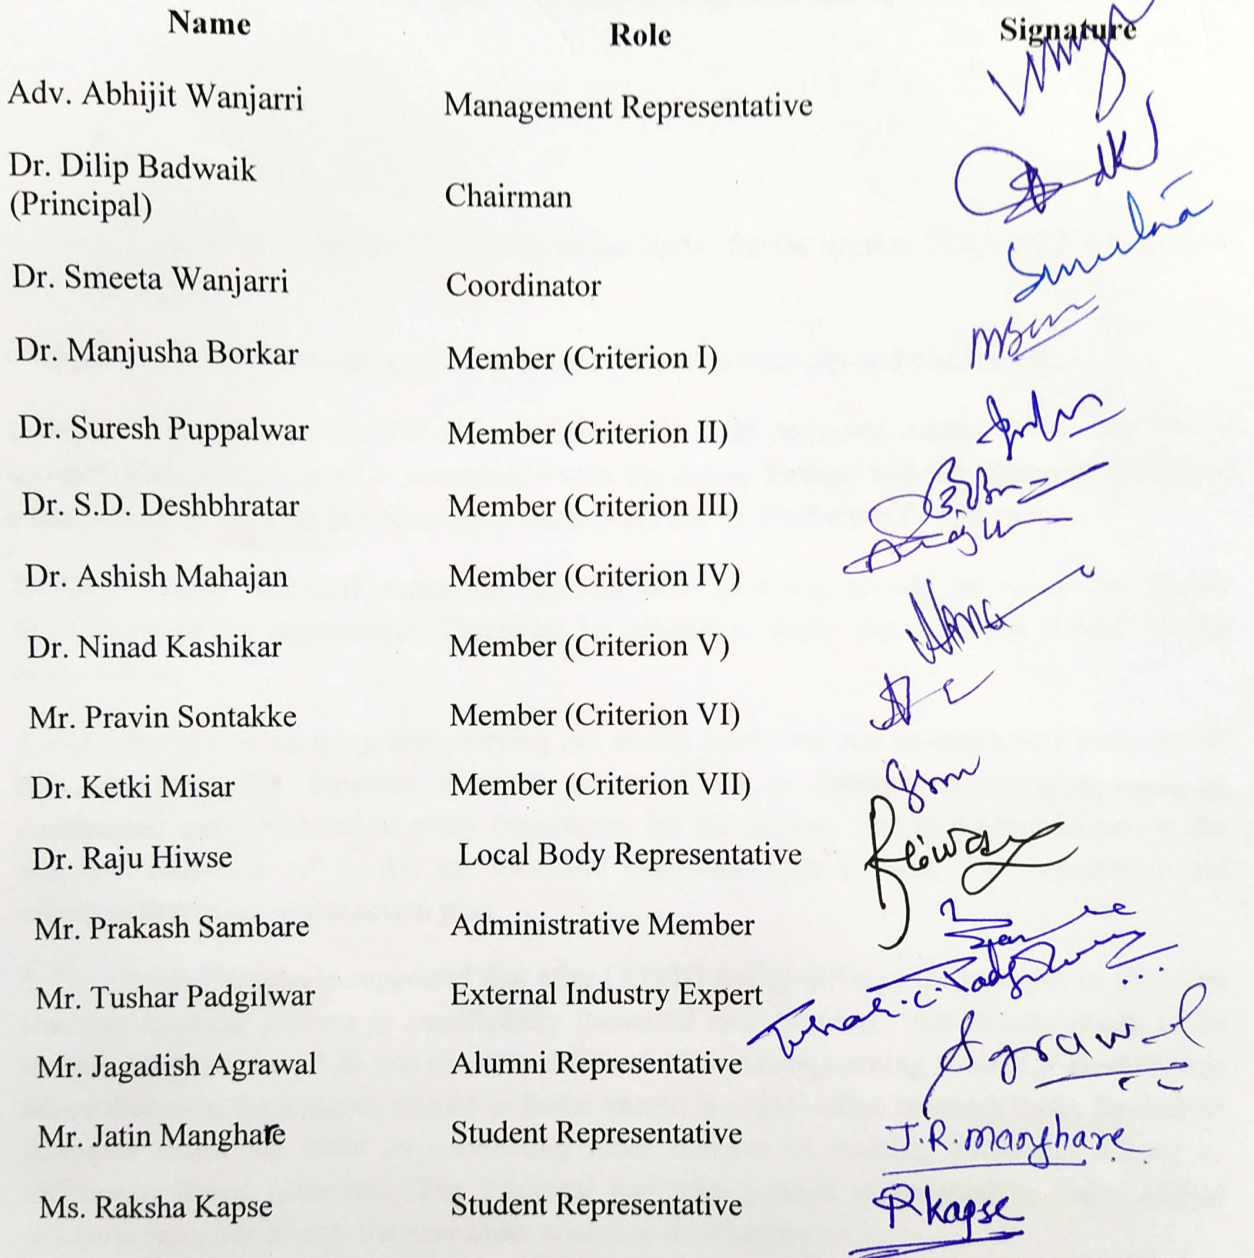 Name Role Signature
Adv. Abhijit Wanjarri Management Representative
Dr. Dilip Badwaik
(Principal) Chairman
Dr. Smeeta Wanjarri Coordinator Smeeta
Dr. Manjusha Borkar Member (Criterion I)
Dr. Suresh Puppalwar Member (Criterion II)
Dr. S.D. Deshbhratar Member (Criterion III)
Dr. Ashish Mahajan Member (Criterion IV)
Dr. Ninad Kashikar Member (Criterion V)
Mr. Pravin Sontakke Member (Criterion VI)
Dr. Ketki Misar Member (Criterion VII)
Dr. Raju Hiwse Local Body Representative
Mr. Prakash Sambare Administrative Member
Mr. Tushar Padgilwar External Industry Expert Tushar.C.Padgilwar
Mr. Jagadish Agrawal Alumni Representative Agrawal
Mr. Jatin Manghare Student Representative J.R.Manghare
Ms. Raksha Kapse Student Representative Rkapse